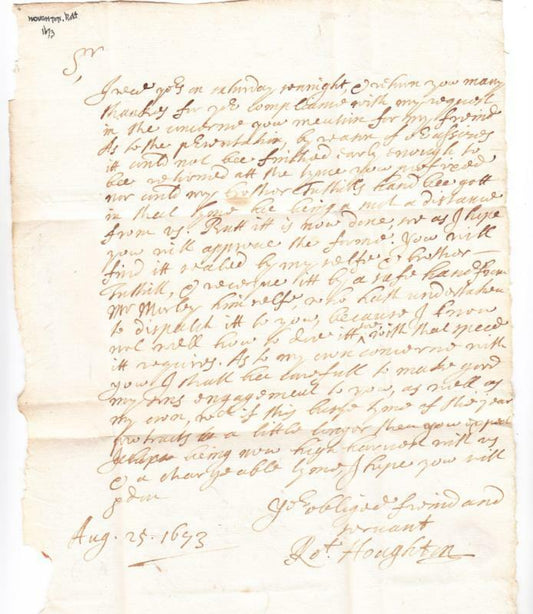 HOUGHTON, Robt
1673
Sr
I recd yors on saturday sennight & returne you many
thankes for yor compliance with my request
in the concerne you mention for my freind
As to the psentation, by reason of
itt could not bee finished early enough to
bee returned att the tyme you prefixed
nor could my brother Tuthills hand bee gott
in that tyme hee being att a distance
from us Butt itt is now done, & as I hope
you will approve the forme. You will
find itt sealed by my selfe & brother
Tuthill, & receive itt by a safe hand from
Mr Morley him selfe, who hath undertaken
to dispatch itt to you, because I know
not well how to doe itt with that speed
itt requires. As to my own concerne with
you I shall bee carefull to make good
my engagement to you, as well as
my own, wch if this busy tyme of the year
a little longer then you expect
being now high harvest with us
& a chargeable tyme, I hope you will
pdon
Yor obliged freind and
servant
Aug. 25. 1673
Rot. Houghton